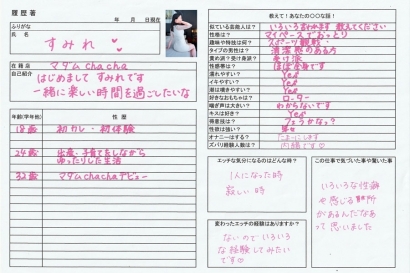 履歴著
年 月 日現在
ふりがな
氏 名
すみれ
在籍店
マダムchacha
自己紹介
はじめまして すみれです
一緒に楽しい時間を過ごしたいな
年齢(学年別)
性 歴
18歳
初カレ・初体験
24歳
出産・子育てをしながら
ゆったりした生活
32歳
マダムchachaデビュー
教えて!あなたの〇〇な話!
似ている芸能人は?
いろいろ言われます 教えてください
性格は?
マイペースでおっとり
趣味や特技は何?
スポーツ観戦
タイプの男性は?
清潔感のある方
責め派?受け身派?
受け派
性感帯は?
ほぼ全身です
濡れやすい?
Yes
イキやすい?
Yes
潮は噴きやすい?
Yes
好きなおもちゃは?
ローター
喘ぎ声は大きい?
わからないです
キスは好き?
Yes
得意技は?
フェラかなっ?
性欲は強い?
オナニーはする?
たまーにします
ズバリ経験人数は?
内緒です
エッチな気分になるのはどんな時?
1人になった時
寂しい時
変わったエッチの経験はありますか?
ないのでいろいろ
な経験してみたい
です
この仕事で気づいた事や驚いた事
いろいろな性癖
や感じる場所
があるんだなあ
って思いました